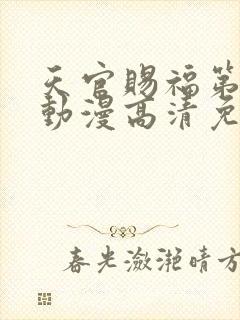 天官賜福第
動漫高清免
春光潋滟晴方